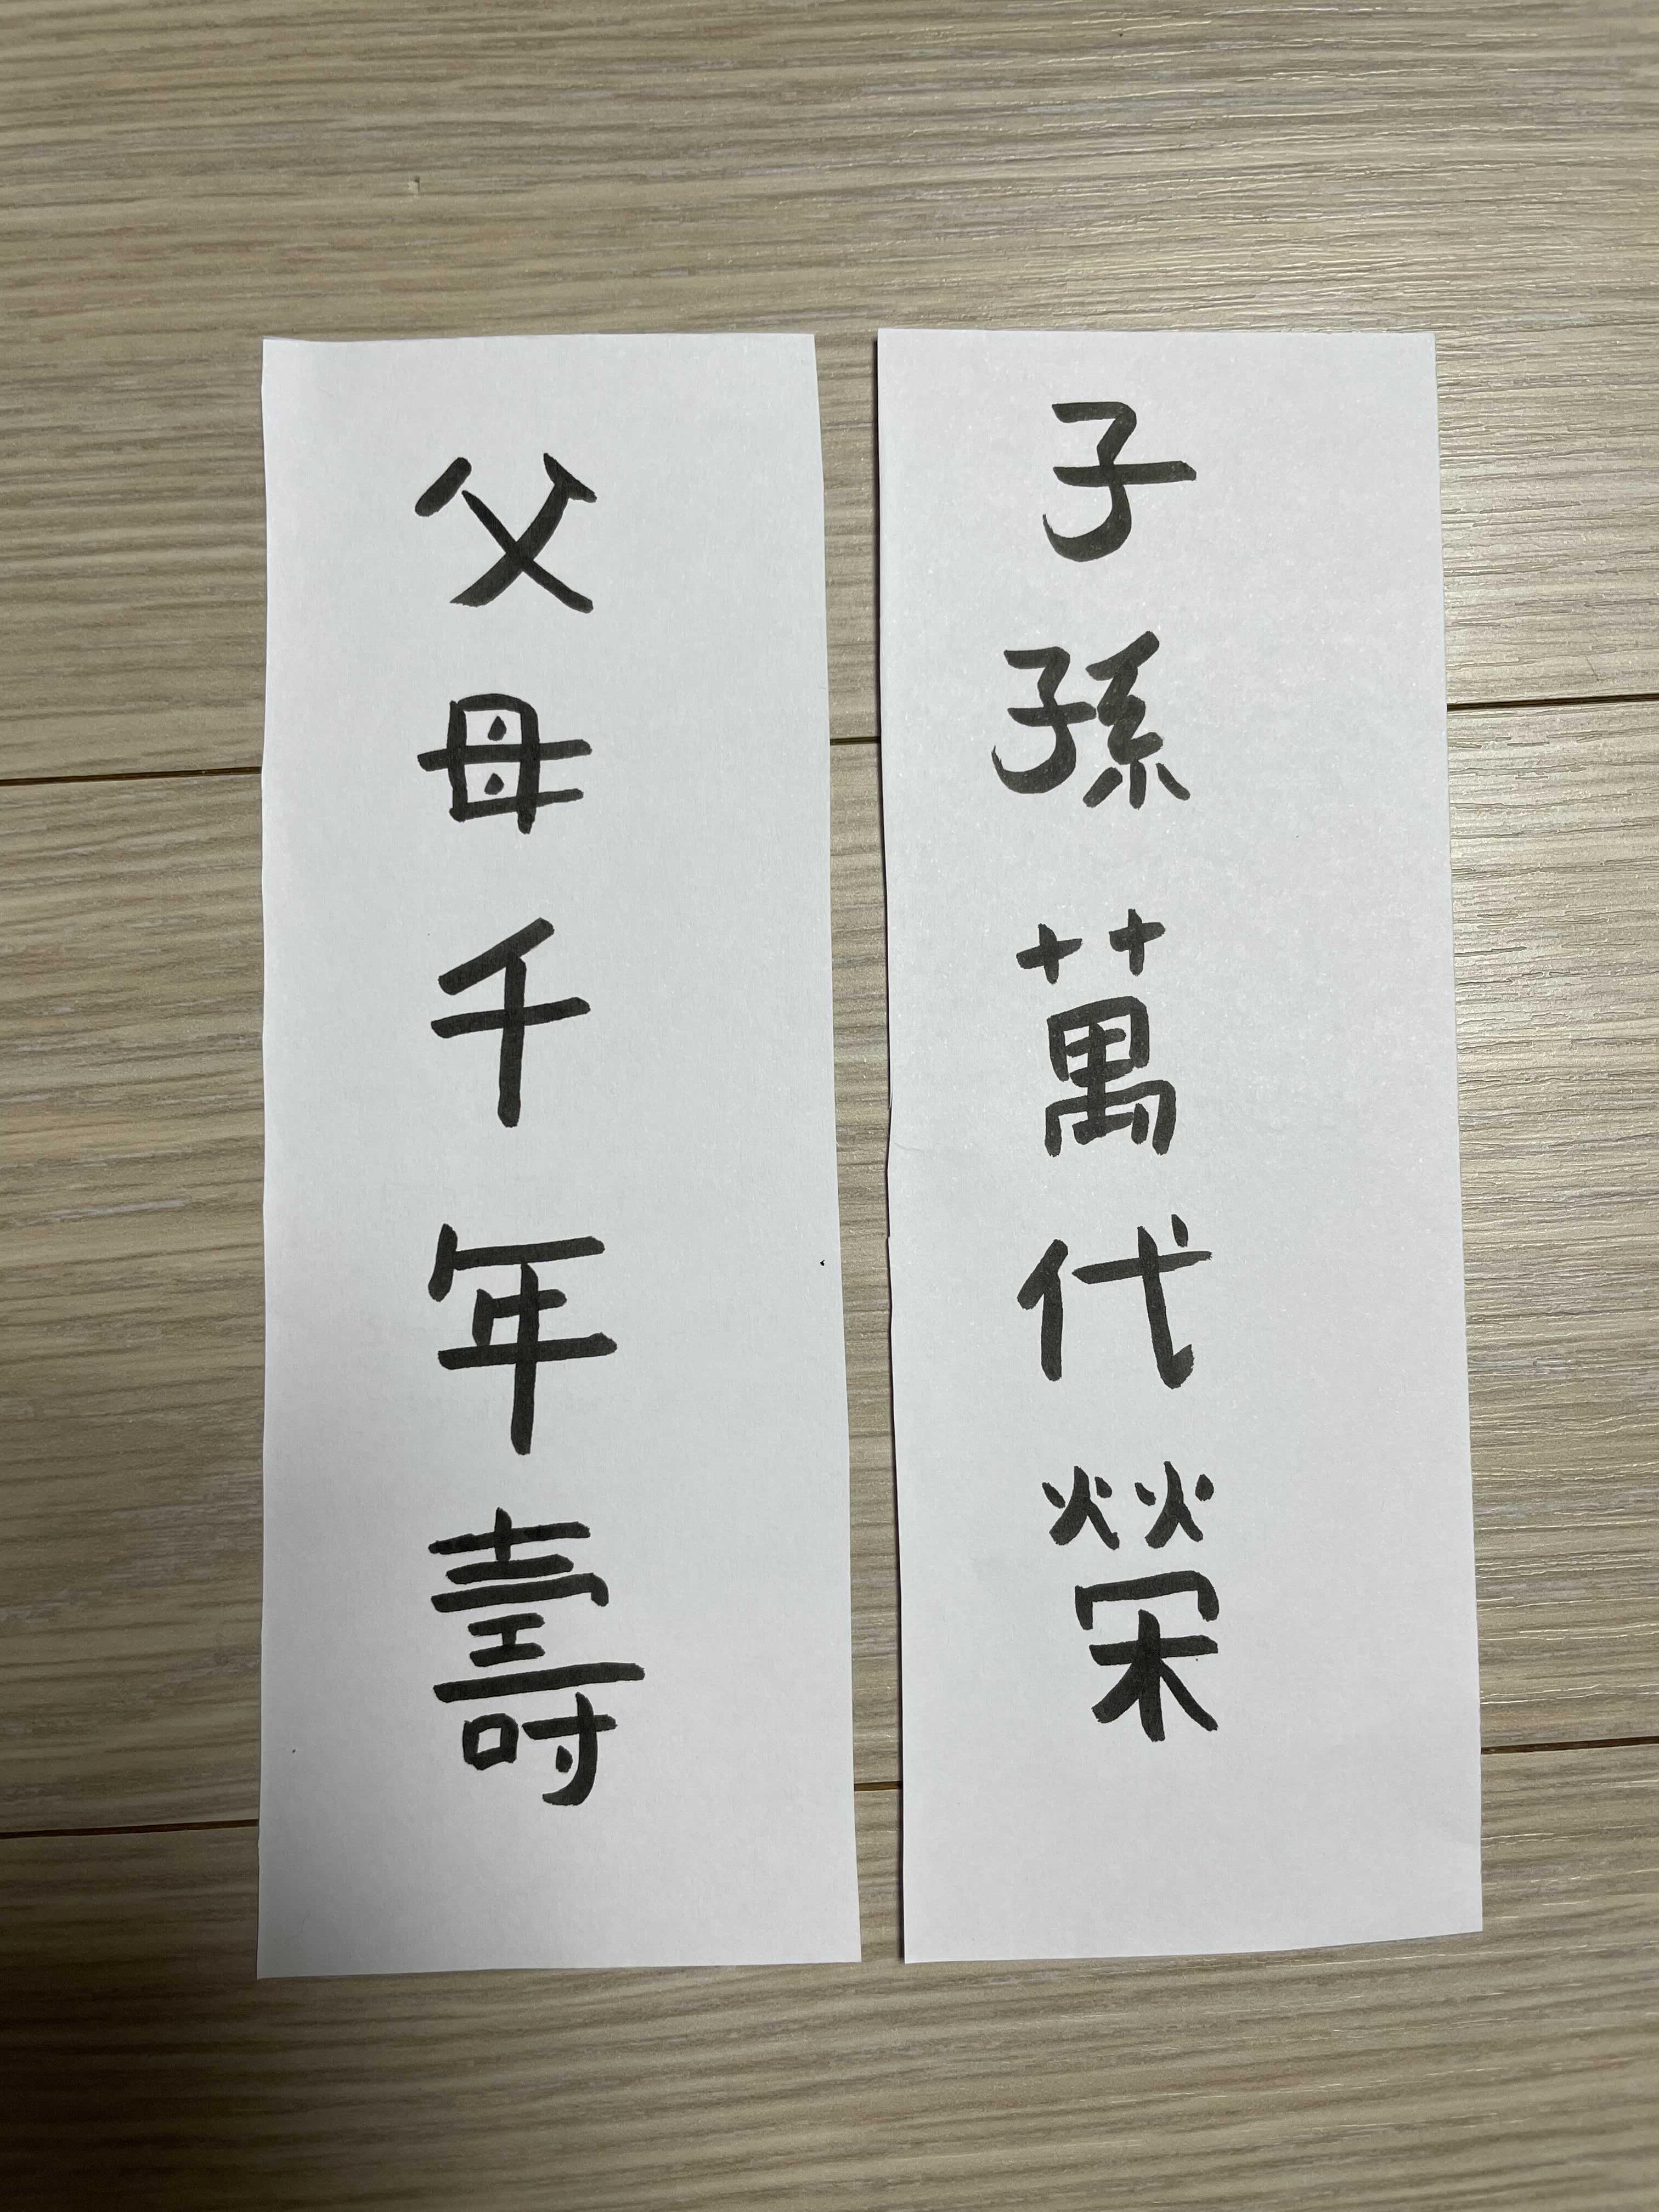 父母千年壽
子孫萬代榮